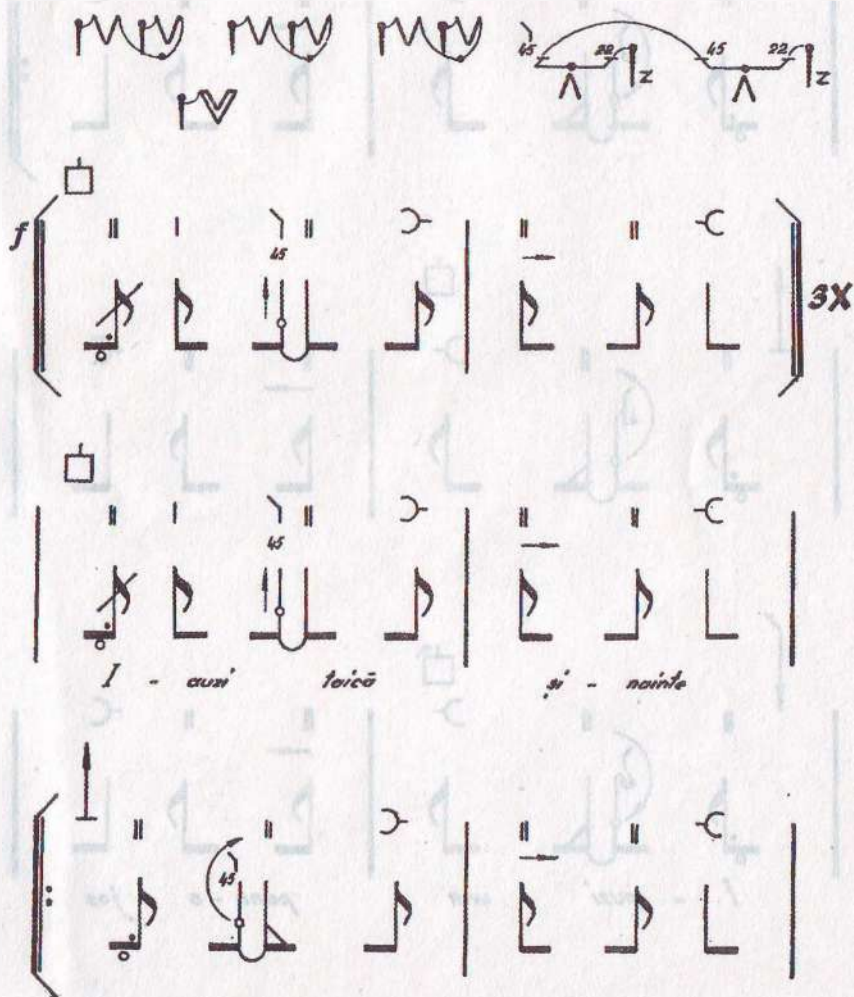 45 22 45 22
z z
f
45
3X
45
I - auzi taică și - nainte
45